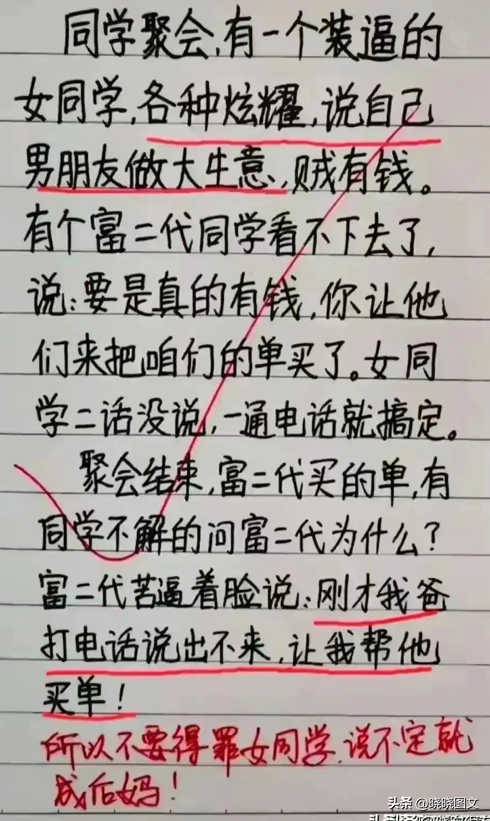 同学聚会,有一个装逼的
女同学,各种炫耀,说自己
男朋友做大生意,贼有钱。
有个富二代同学看不下去了,
说:要是真的有钱,你让他
们来把咱们的单买了。女同
学二话没说,一通电话就搞定。
聚会结束,富二代买的单,有
同学不解的问富二代为什么?
富二代苦逼着脸说:刚才我爸
打电话说出不来,让我帮他
买单!
所以不要得罪女同学,说不定就
成后妈!
头条 @晓晓图文